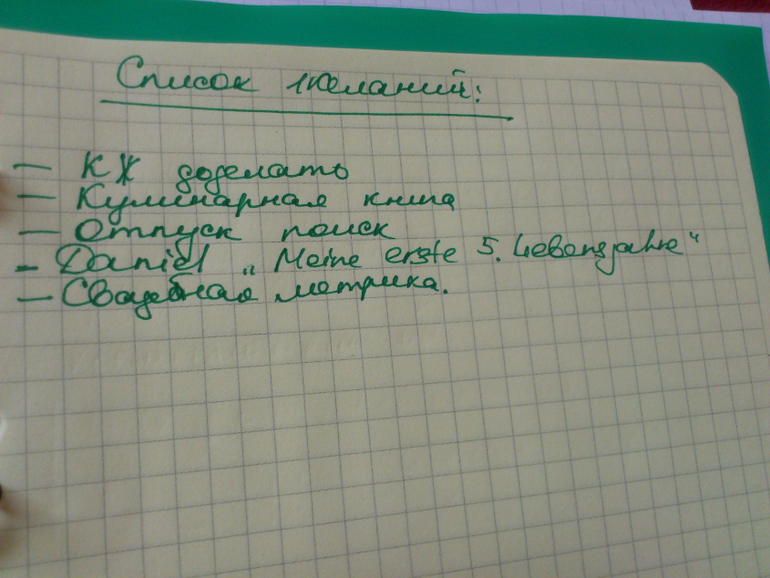 Список желаний:
— КЖ доделать
— Кулинарная книга
— Отпуск поиск
- Daniel „Meine erste 5. Lebensjahre“
— Свадебная метрика.